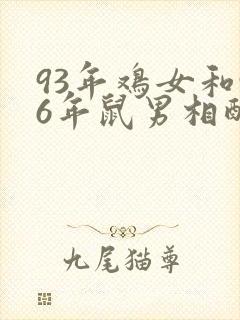 93年鸡女和
6年鼠男相
九尾猫尊